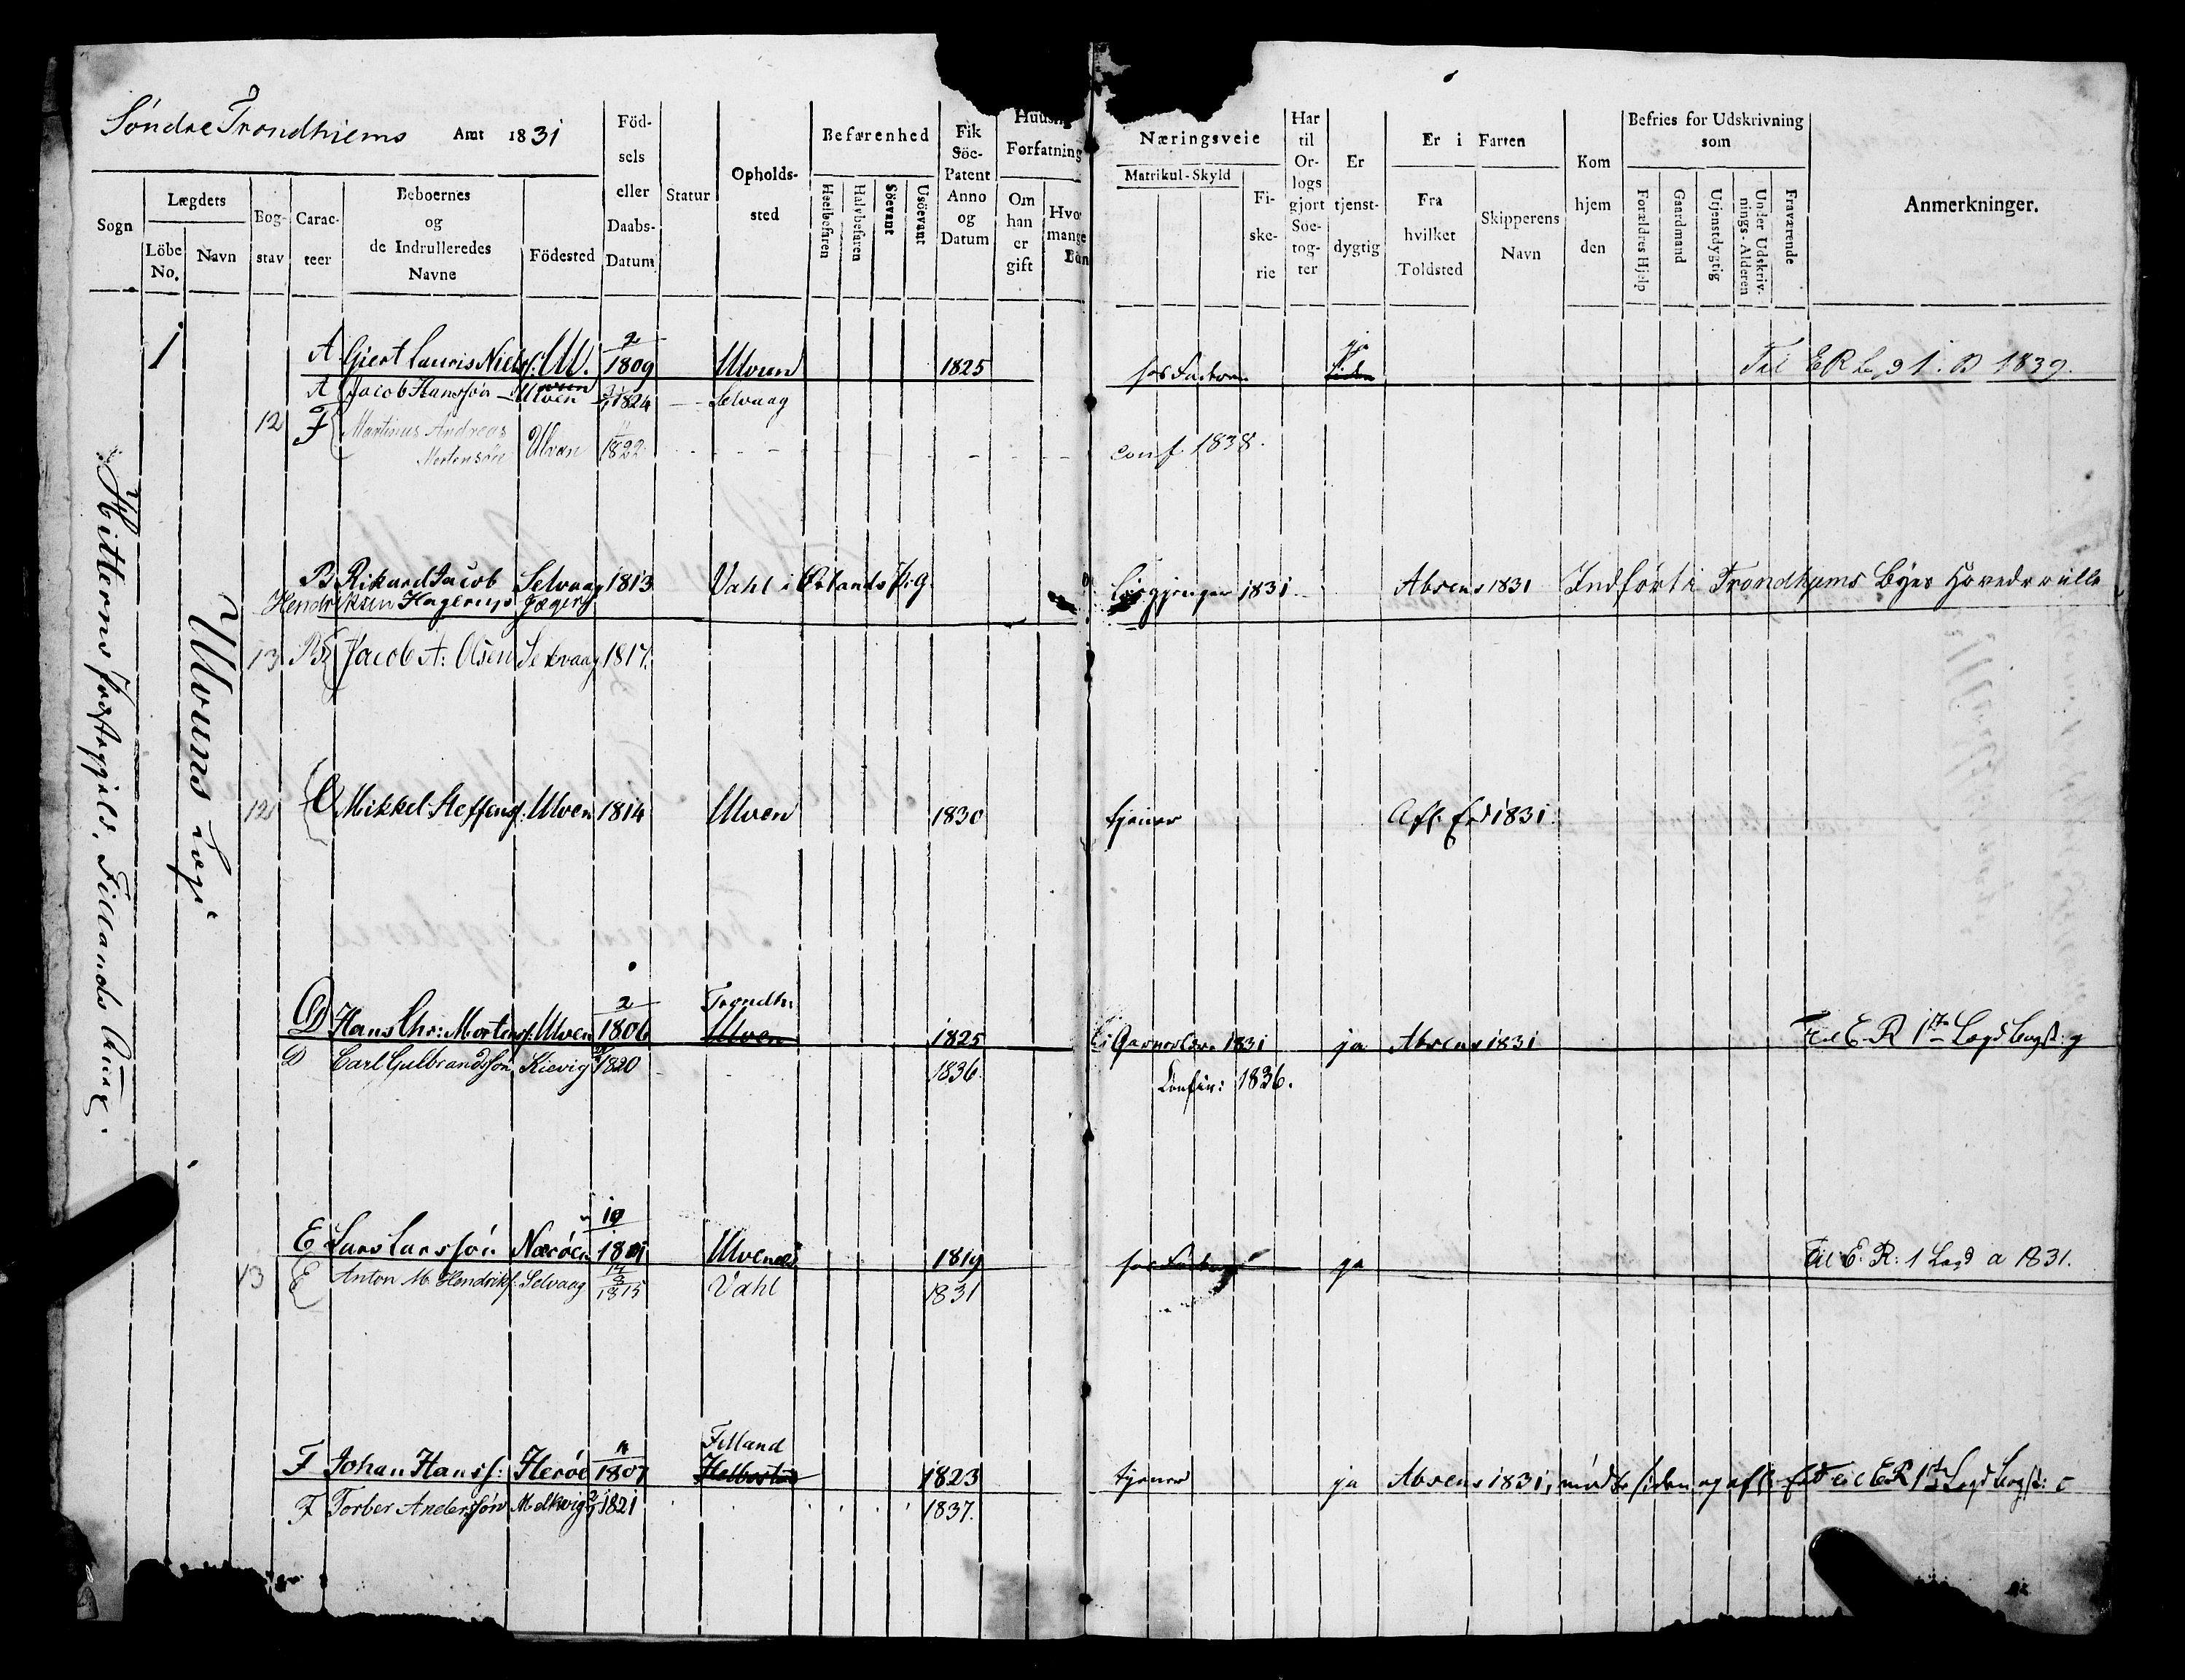 Söndre Trondhiems Amt 1831
Sogn
Lægdets
Löbe No.
Navn
Bog-stav
Carac-teer
Beboernes og de Indrulleredes Navne
Födested
Föd-sels eller Daabs-Datum
Statur
Opholds-sted
Befærenhed
Heelbefaren
Halvbefaren
Söevant
Usöevant
Fik Söe-Patent Anno og Datum
Forfatning
Om han er gift
Næringsveie
Matrikul-Skyld
Fi-ske-rie
Har til Or-logs gjort Söe-tog-ter
Er tjenst-dygtig
Er i Farten
Fra hvilket Toldsted
Skipperens Navn
Kom hjem den
Befries for Udskrivning som
Forældres Hjelp
Gaardmand
Utjenstdygtig
Under Udskriv-nings-Alderen
Fraværende
Anmerkninger.
Hitterns Præstegjeld, Fillands Ann:
1
Ulvuns Lægd
A Giert Lauris Niels: Ul. 2 1809 Ulvun 1825 hos Faderen ja Til E R Lægd 1. B 1839.
A Jacob Hanssön Ulven 1824 Selvaag
12 F Martinus Andreas Mortensön Ulvan 11 1822 conf 1838.
B Rikard Jacob Selvaag 1813 Vahl i Örlands Pr.G. 1831 Absens 1831 Indfört i Trondhjems Byes Hovedrulle
Hendriksen Hagerup Jægers
13 B Jacob A: Olsen Selvaag 1817.
12 C Mikkel Steffens: Ulven 1814 Ulven 1830 tjener Aft. 1831.
D Hans Chr: Mortens: Ulven 2 1806 Trondh: Ulven 1825 1831 ja Absens 1831 Til E. R 1ste Lægd Bogst: g
D Carl Gulbrandssön Kievig 1820 1836. Confir: 1836.
E Lars Larssön Næröen 10 1801 Ulven 1819 hos Faderen ja Til E. R: 1 Lægd a 1831.
13 E Anton M. Hendriks: Selvaag 1815 Vahl 1831
F Johan Hanss: Heröe 11 1807 Filland 1823 tjener ja Absens 1831, mödte siden og aft. Til E R 1ste Lægd Bogst: c
F Torber Anderssön Melkvig 1821 1837.